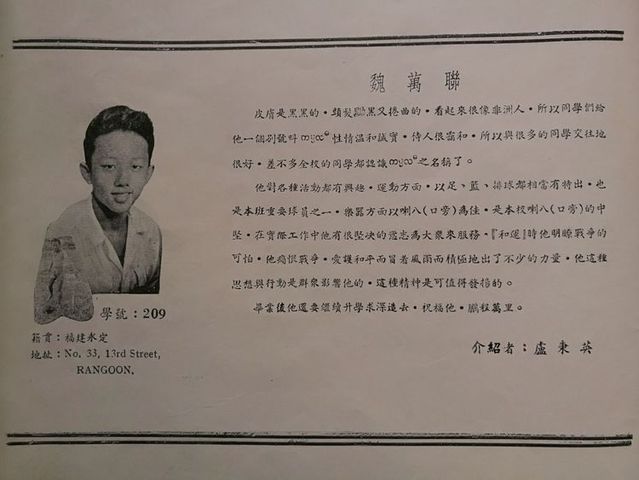 魏萬聯
皮膚是黑黑的。頭髮黑又捲曲的。看起來很像非洲人。所以同學們給
他一個別號叫 性情溫和誠實。待人很靄和。所以與很多的同學交往地
很好。差不多全校的同學都認識 之名稱了。
他對各種活動都有興趣。運動方面。以足、籃、排球都相當有特出。也
是本班重要球員之一。樂器方面以喇叭(口旁)爲佳。是本校喇叭(口旁)的中
堅。在實際工作中他有很堅决的意志爲大衆來服務。『和運』時他明瞭戰爭的
可怕。他痛恨戰爭。愛護和平而冒着風雨而積極地出了不少的力量。他這種
思想與行動是群衆影響他的。這種精神是可值得發揚的。
畢業後他還要繼續升學求深造去。祝福他。鵬程萬里。
介紹者：盧秉英
學號：209
籍貫：福建永定
地址：No. 33, 13rd Street,
RANGOON.